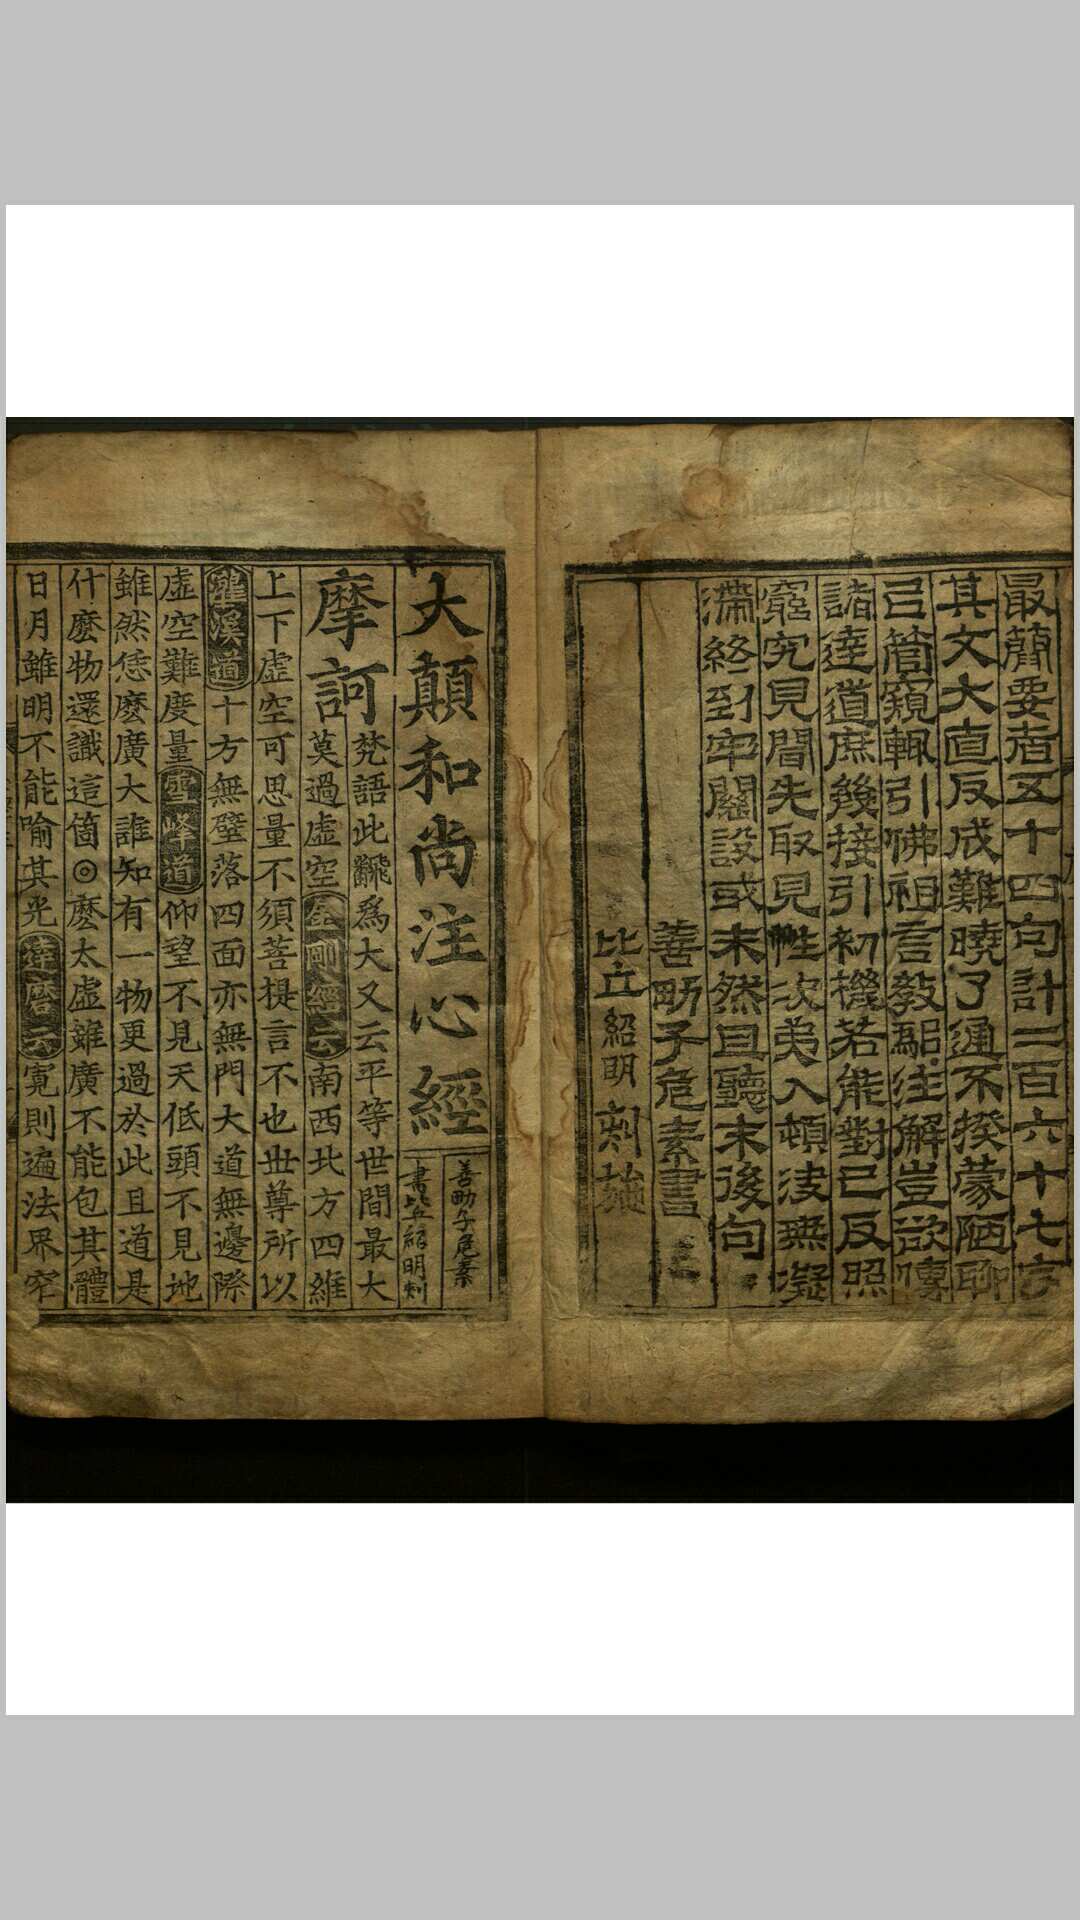 最簡要者五十四句計二百六十七字
其文大直反成難曉了通不揆蒙陋聊
己管窺輒引佛祖言教馹注解豈欲傳
諸達道庶幾接引初機若能對己反照
窮究見聞先取見性次苐入頓法無凝
滯終到牢關設或未然且聽末後句
善励子危素書
比丘紹明刻施
大顛和尚注心經
善助子危素
書比丘紹明刻
摩訶梵語此飜爲大又云平等世間最大
莫過虛空金剛經云南西北方四維
上下虛空可思量不須菩提言不也世尊所以
靈溪道十方無壁落四面亦無門大道無邊際
虛空難度量雪峰道仰望不見天低頭不見地
雖然恁麽廣大誰知有一物更過於此且道是
什麽物還識這箇◎麽太虛雖廣不能包其體
日月雖明不能喻其光達磨云寬則遍法界窄